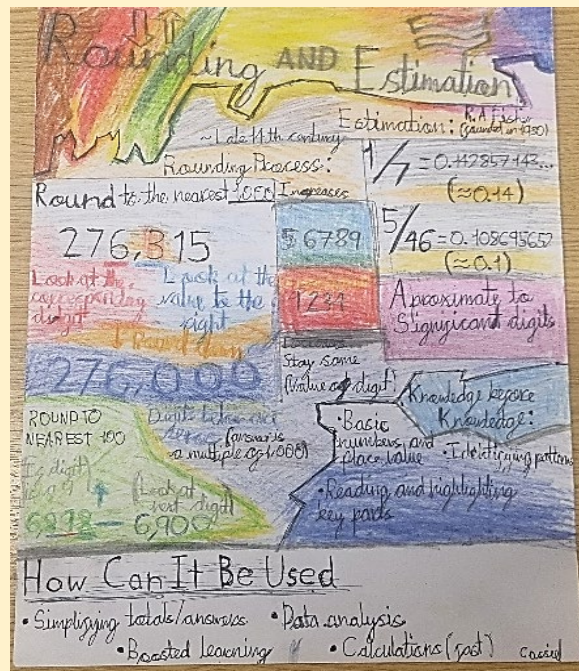 Rounding AND Estimation
Estimation: R.A Fisher
(founded in 1930)
~Late 19th century
Rounding Process:
1/7 = 0.142857143...
(≈0.14)
Round to the nearest 1,000
Increases
276,315
5 6 7 8 9
5/46 = 0.108695652
(≈0.1)
Look at the
corresponding
digit
Look at the
value to the
right
1 2 3 4
Aproximate to
Significant digits
↓ Round down
276,000
Stay same
(Value of digit)
Knowledge before
Knowledge:
ROUND TO
NEAREST 100
Digits below are
zeros (answer is
a multiple of 1,000)
• Basic
numbers, and
place value
• Identifying patterns
(Look at
next digit)
6,900
• Reading and highlighting
key parts
How Can It Be Used
• Simplifying totals/answers
• Data analysis
• Boosted Learning
• Calculations (fast)